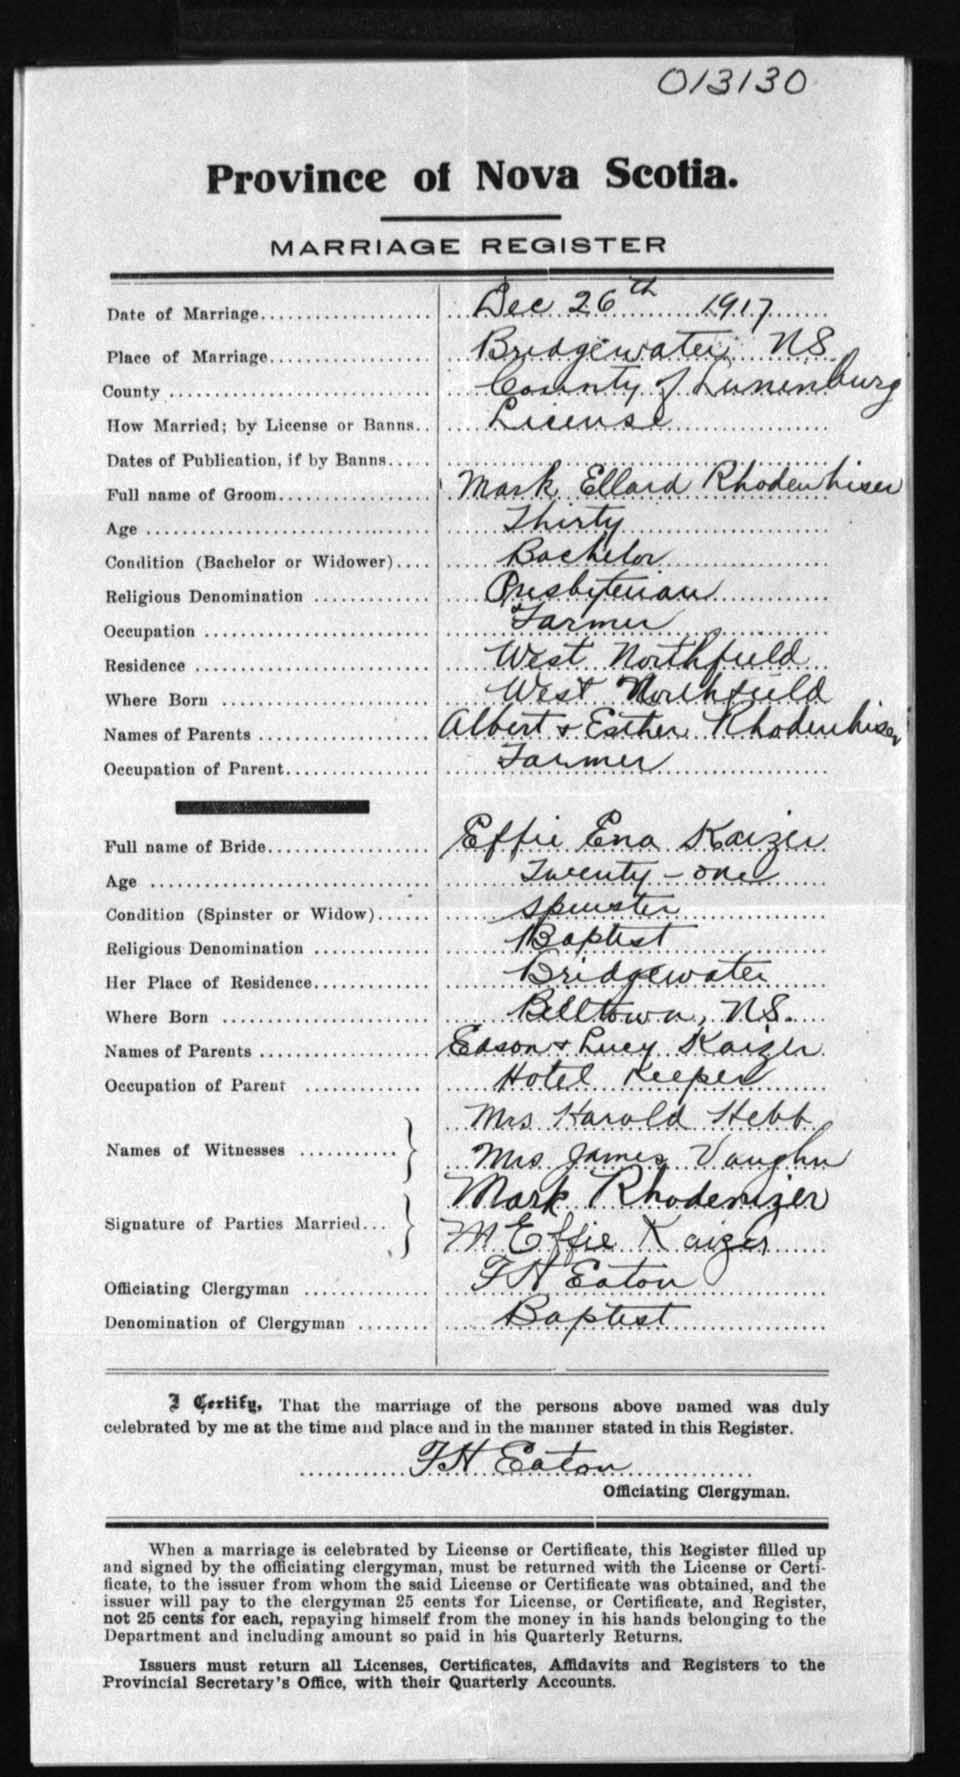 013130
Province of Nova Scotia.
MARRIAGE REGISTER
Date of Marriage.................. Dec 26th 1917
Place of Marriage.................. Bridgewater NS
County .................. County of Lunenburg
How Married; by License or Banns.. License
Dates of Publication, if by Banns.....
Full name of Groom.................. Mark Ellard Rhodenhiser
Age .................. Thirty
Condition (Bachelor or Widower).... Bachelor
Religious Denomination ............. Presbyterian
Occupation .................. Farmer
Residence .................. West Northfield
Where Born .................. West Northfield
Names of Parents .................. Albert & Esther Rhodenhiser
Occupation of Parent................ Farmer
Full name of Bride.................. Effie Ena Kaizer
Age .................. Twenty-one
Condition (Spinster or Widow)...... Spinster
Religious Denomination ............. Baptist
Her Place of Residence............. Bridgewater
Where Born .................. Billtown, NS.
Names of Parents .................. Edson & Lucy Kaizer
Occupation of Parent ............. Hotel Keeper
Names of Witnesses ........... } Mrs Harold Hebb
Mrs James Vaughn
Signature of Parties Married... } Mark Rhodenizer
M Effie Kaizer
Officiating Clergyman ............. F H Eaton
Denomination of Clergyman ........ Baptist
I Certify, That the marriage of the persons above named was duly
celebrated by me at the time and place and in the manner stated in this Register.
F H Eaton
Officiating Clergyman.
When a marriage is celebrated by License or Certificate, this Register filled up
and signed by the officiating clergyman, must be returned with the License or Certi-
ficate, to the issuer from whom the said License or Certificate was obtained, and the
issuer will pay to the clergyman 25 cents for License, or Certificate, and Register,
not 25 cents for each, repaying himself from the money in his hands belonging to the
Department and including amount so paid in his Quarterly Returns.
Issuers must return all Licenses, Certificates, Affidavits and Registers to the
Provincial Secretary's Office, with their Quarterly Accounts.